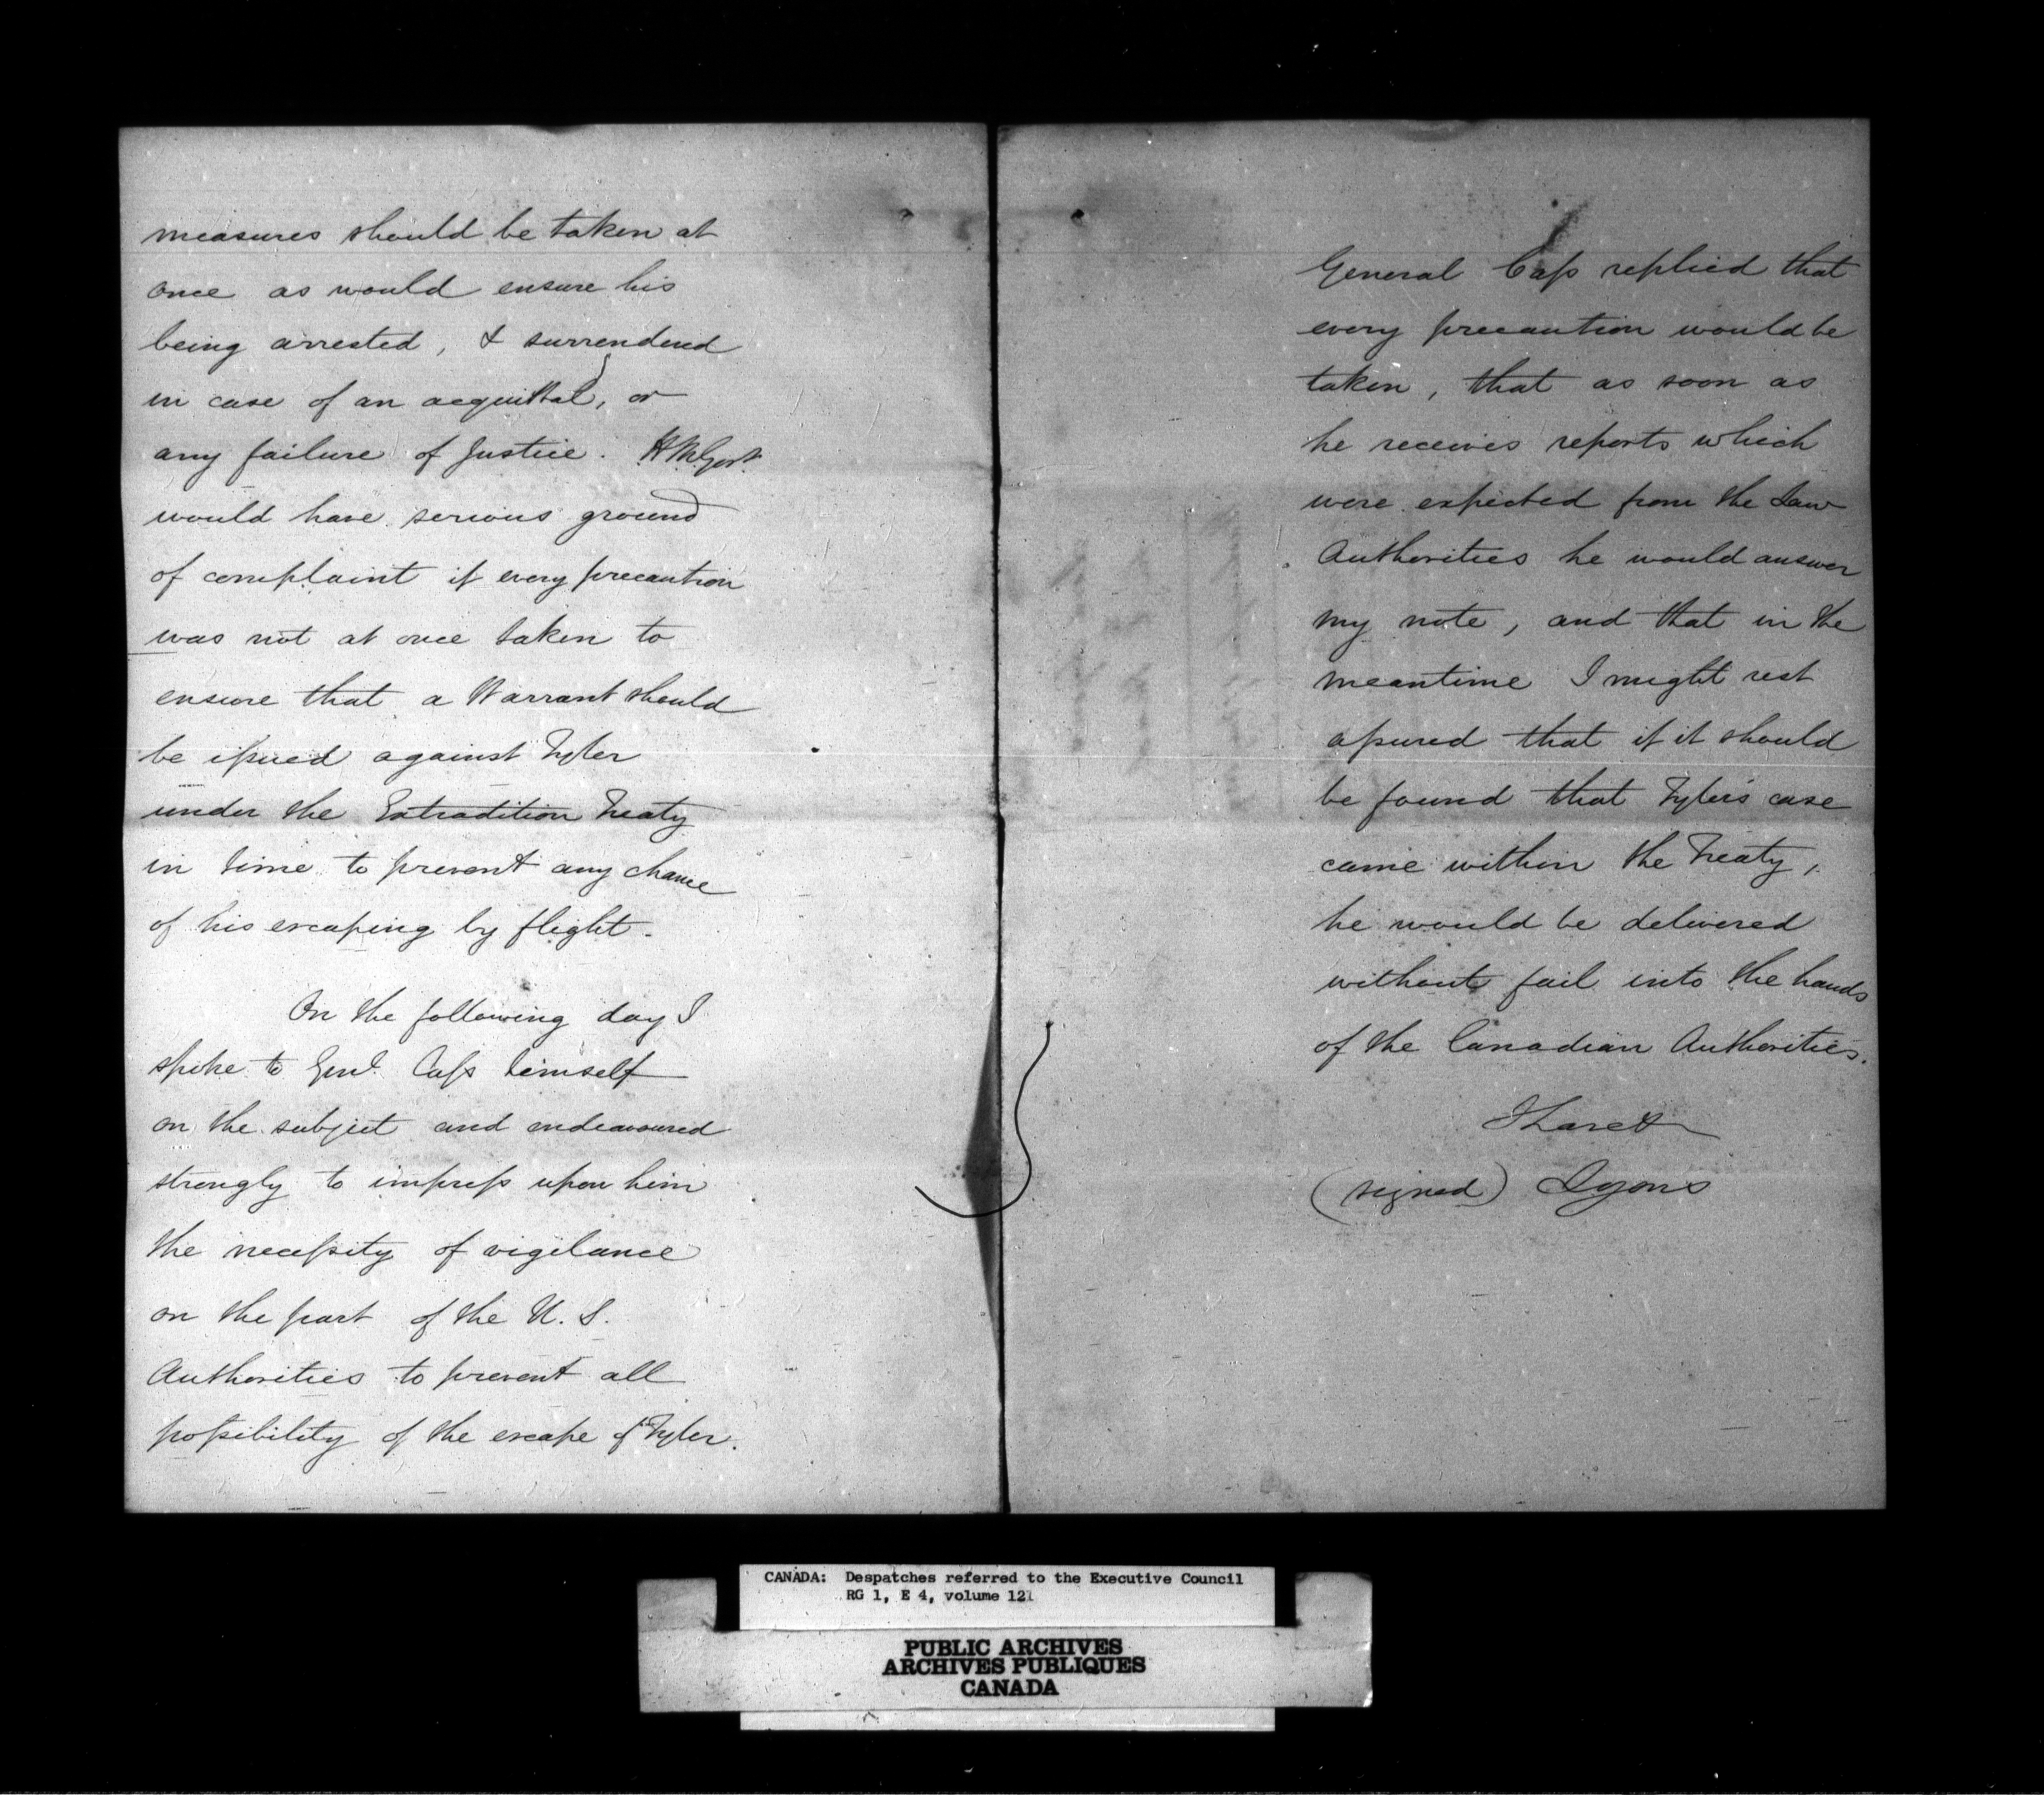 measures should be taken at
once as would ensure his
being arrested, & surrendered
in case of an acquittal, or
any failure of Justice. H.M. Govt.
would have serious ground
of complaint if every precaution
was not at once taken to
ensure that a Warrant should
be issued against Tyler
under the Extradition Treaty
in time to prevent any chance
of his escaping by flight.
On the following day I
spoke to Genl. Cass himself
on the subject and endeavoured
strongly to impress upon him
the necessity of vigilance
on the part of the U.S.
Authorities to prevent all
possibility of the escape of Tyler.
General Cass replied that
every precaution would be
taken, that as soon as
he receives reports which
were expected from the Law
Authorities he would answer
my note, and that in the
meantime I might rest
assured that if it should
be found that Tyler's case
came within the Treaty,
he would be delivered
without fail into the hands
of the Canadian Authorities.
I have &
(signed) Lyons
CANADA: Despatches referred to the Executive Council
RG 1, E 4, volume 121
PUBLIC ARCHIVES
ARCHIVES PUBLIQUES
CANADA